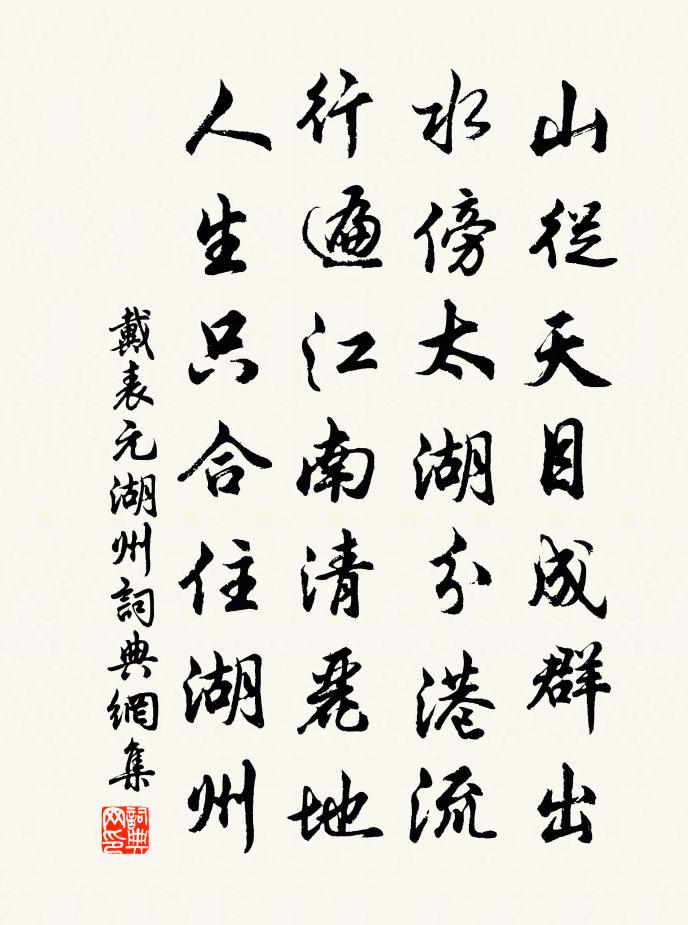 山從天目成群出
水傍太湖分港流
行遍江南清麗地
人生只合住湖州
戴表元湖州詞典網集
詞典
网印